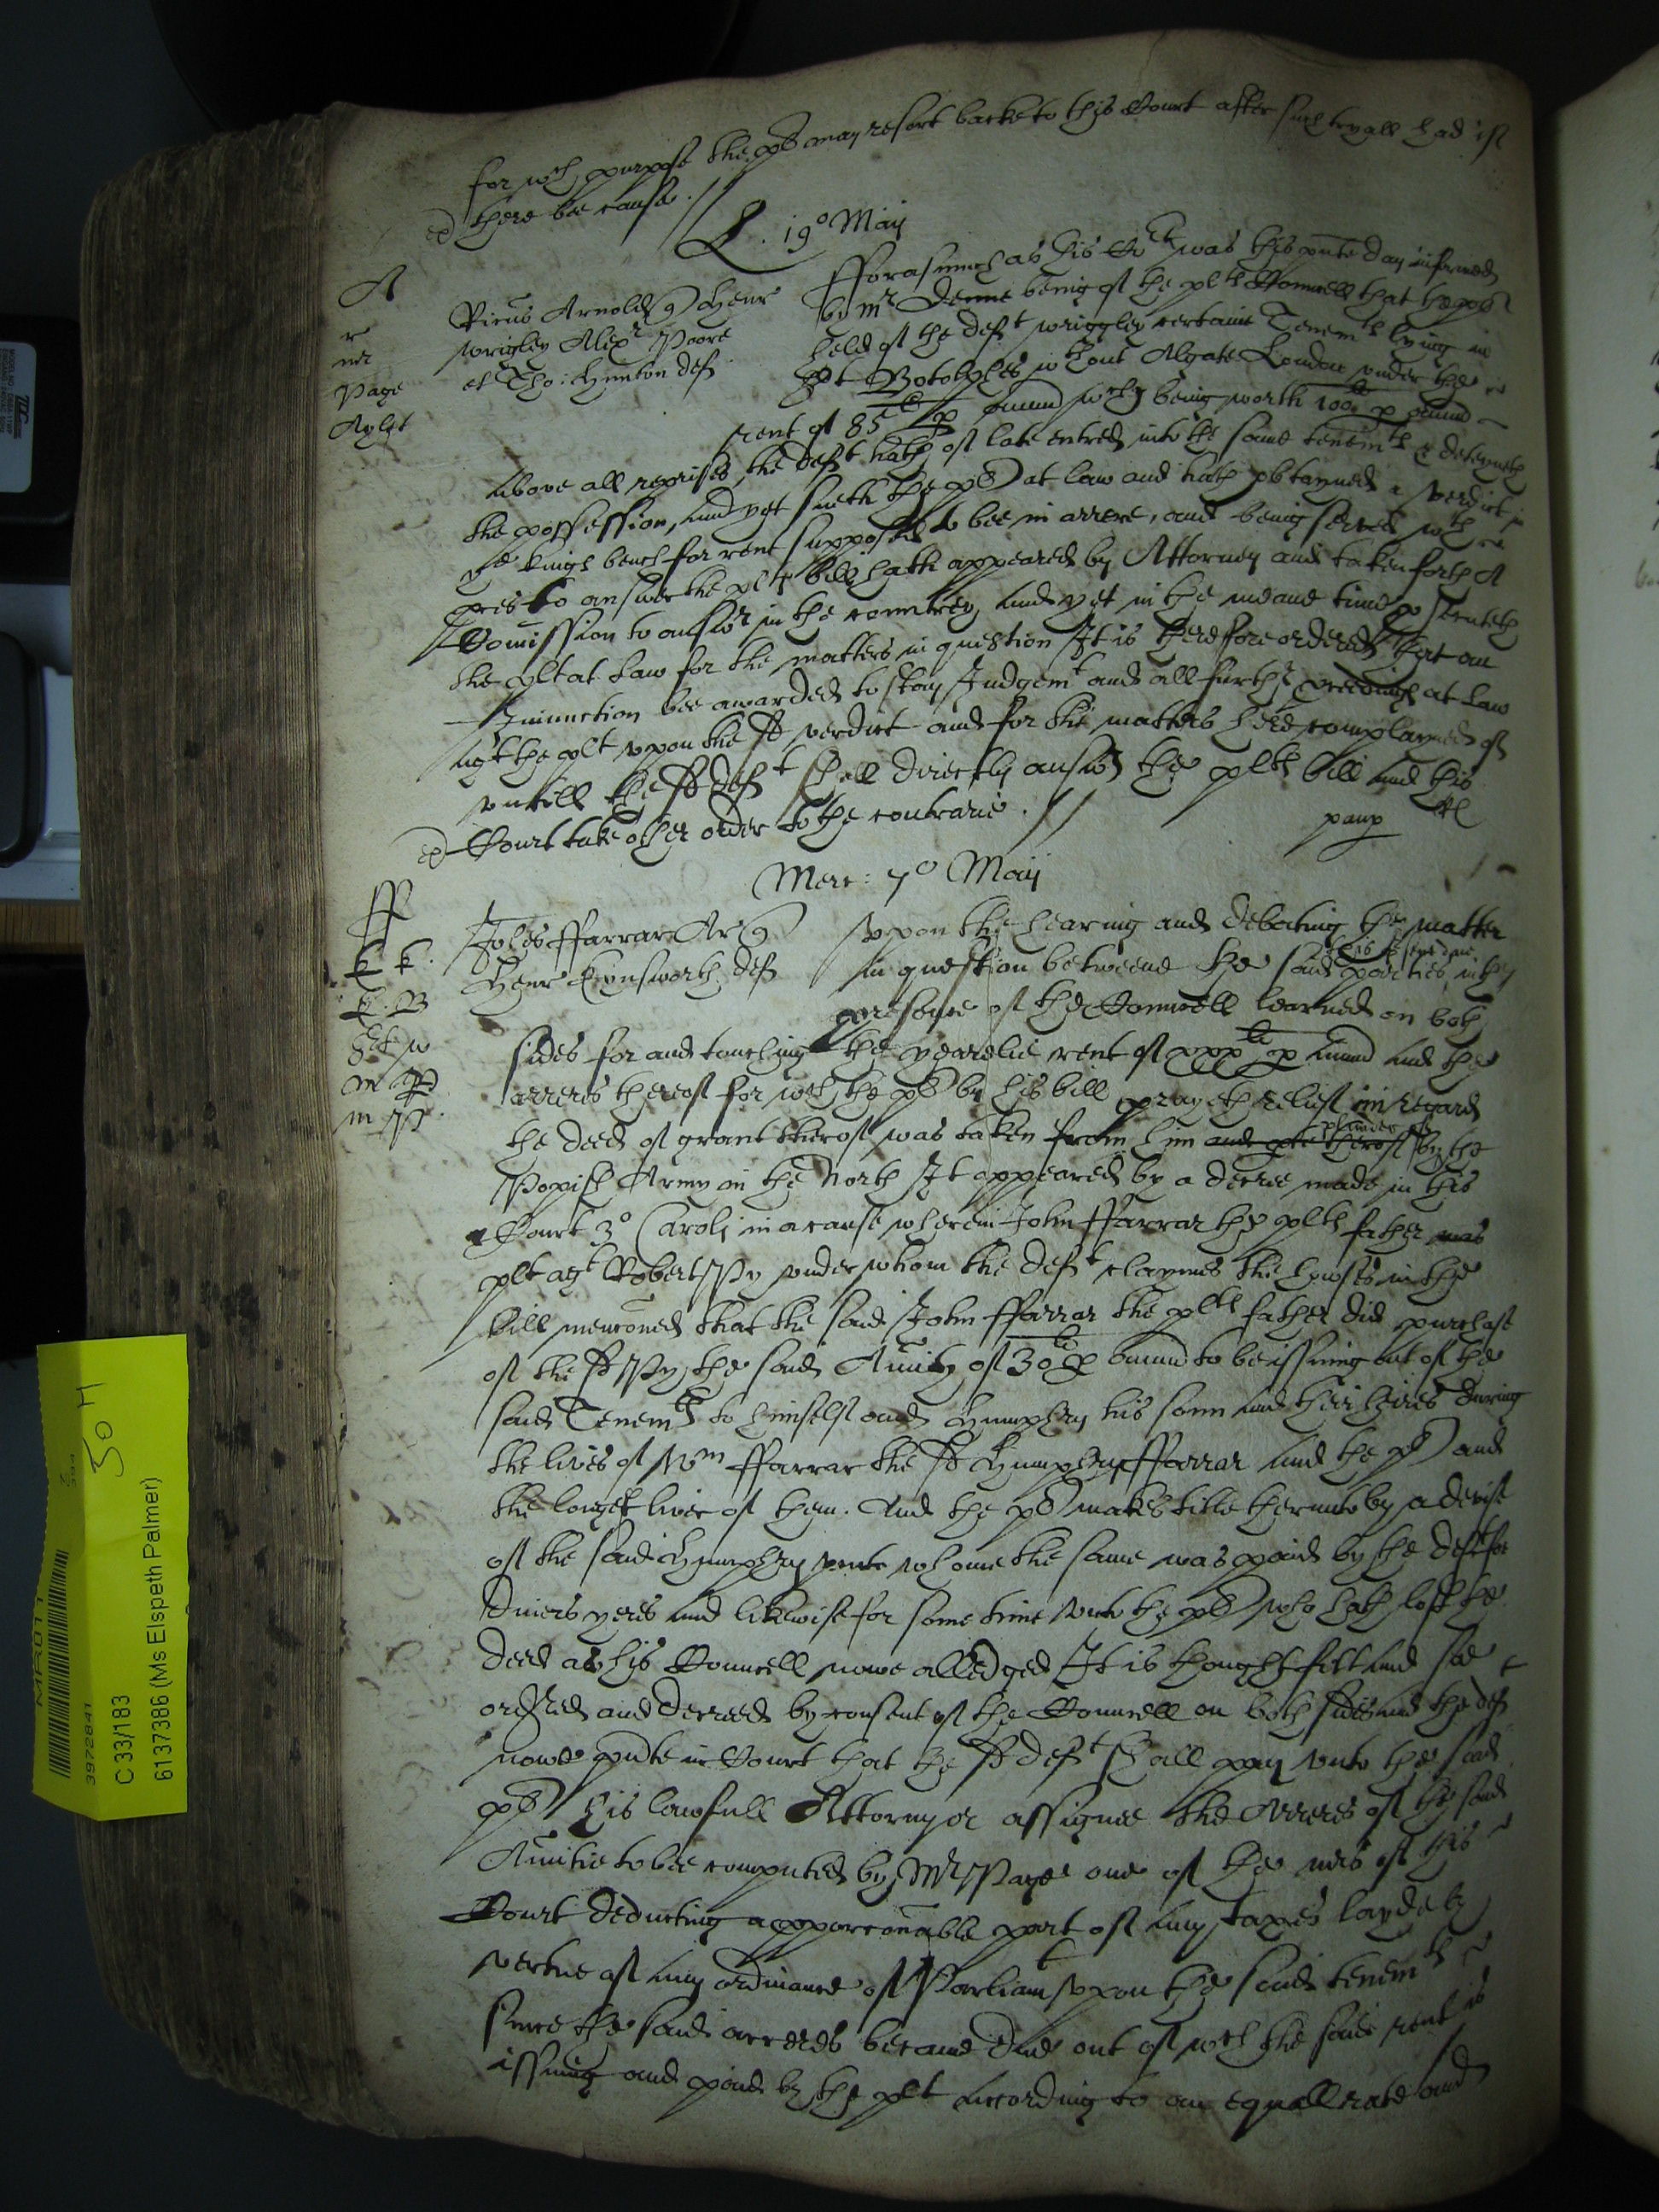 for wch purpose the pl may resort backe to this Court after such tryall had if
there bee cause. //
L. 19o Maij
A
r
mr
Page
Aylet
Ricus Arnold q Henr
wrigley Alexr Poore
et Tho: Hunton def
fforasmuch as this Cort was this pnte day informed
by mr Denne being of the plts Councell that the pl
held of the deft wriggley certaine Tenemts lying in
St Botolphes wthout Algate London under the
rent of 85li p annum wch being worth 100li p annum
above all reprises, the deft hath of late entred into the same tenemts & deteyneth
the possession, and yet sueth the pl at law and hath obtayned a verdict in
ye kings bench for rent supposed to bee in arrere, and being served wth
pces to answer the plts bill hath appeared by Attorney and taken forth A
Comission to answr in the countrey, and yet in the meane time psecuteth
the plt at Law for the matters in question It is therefore ordered that an
Iniunction bee awarded to stay Judgemt and all further pceedings at Law
agt the plt upon the sd verdict and for the matters here complayned of
untill the sd deft shall directly answr the plts bill and this
Court take other order to the contrarie. //
Merc: 7o Maij
ff
Johes ffarrar Ar q
Henr Kynsworth def
Upon the hearing and debating the matter
in question betweene the said parties this present day in the
presence of the Councell learned on both
sides for and touching the yearelie rent of xxxli p annum and the
arreres thereof for wch the pl by his bill prayeth reliefe in regard
the deed of grant therof was taken from him and pte therof plundered by the
Popish Army in the North It appeared by a decree made in this
Court 3o Caroli in a cause wherein John ffarrar the plts father was
plt agt Robert Py under whom the deft claymes the howses in the
bill menconed that the said John ffarrar the plts father did purchase
of the sd Py, the said Anuity of 30li p annum to be issuing out of the
said Tenemts to himself and Humphry his sonn and their heires during
the lives of Wm ffarrar the sd Humphry ffarrar and the pl and
the longest liver of them. And the pl makes title therunto by a devise
of the said Humphry unto whome the same was paid by the deft for
divers yeres and likewise for some time unto the pl who hath lost the
deed as his Councell nowe alledged It is thought fitt and soe
ordered and decreed by consent of the Councell on both sides and the def
nowe pnte in Court that the sd deft shall pay unto the said
pl his lawfull Attorny or assignee the Arreres of the said
Anuitie to bee computed by Mr Page one of the mrs of this
Court deducting a pporconable part of any taxes layde by
vertue of any ordinance of Parliamt upon the said tenemts
since the said arreres became due out of wch the said rent is
issuing and paid by the plt according to an equall rate and
MR011
3972841
C 33/183
6137386 (Ms Elspeth Palmer)
30 H